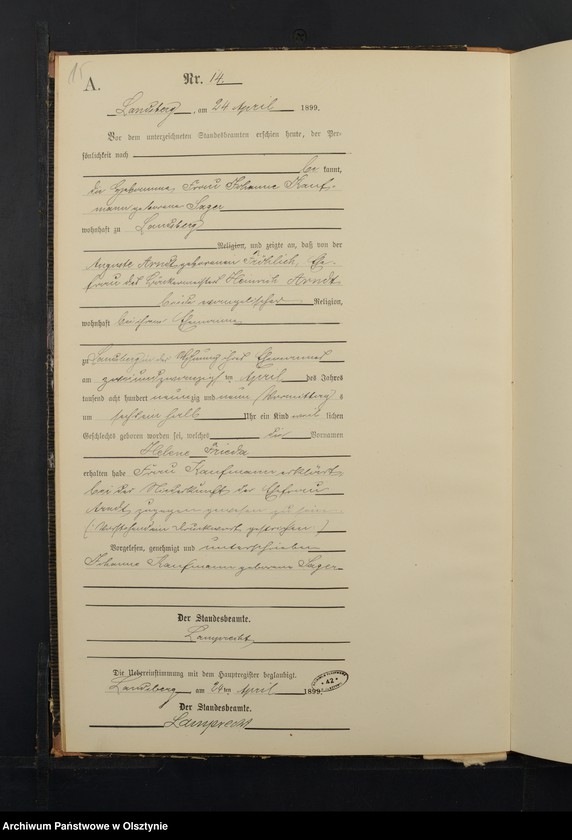 15
A.
Nr. 14.
Landsberg, am 24 April 1899.
Vor dem unterzeichneten Standesbeamten erschien heute, der Per-
sönlichkeit nach
be kannt,
die Hebamme, Frau Johanne Kauf-
mann geborene Sager
wohnhaft zu Landsberg
Religion, und zeigte an, daß von der
Auguste Arndt geborenen Fröhlich, Ehe-
frau des Bäckermeisters Heinrich Arndt,
beide evangelischer Religion,
wohnhaft bei ihrem Ehemanne
zu Landsberg in der Wohnung ihres Ehemannes
am zweiundzwanzigsten April des Jahres
tausend acht hundert neunzig und neun Vormittags
um sechs einhalb Uhr ein Kind weib lichen
Geschlechts geboren worden sei, welches die Vornamen
Helene Frieda
erhalten habe. Frau Kaufmann erklärt,
bei der Niederkunft der Ehefrau
Arndt zugegen gewesen zu sein.
(Vorstehend ein Druckwort gestrichen.)
Vorgelesen, genehmigt und unterschrieben
Johanne Kaufmann geborene Sager
Der Standesbeamte.
Lamprecht
Die Uebereinstimmung mit dem Hauptregister beglaubigt.
Landsberg am 24ten April 1899
* 42 *
Der Standesbeamte.
Lamprecht
Archiwum Państwowe w Olsztynie